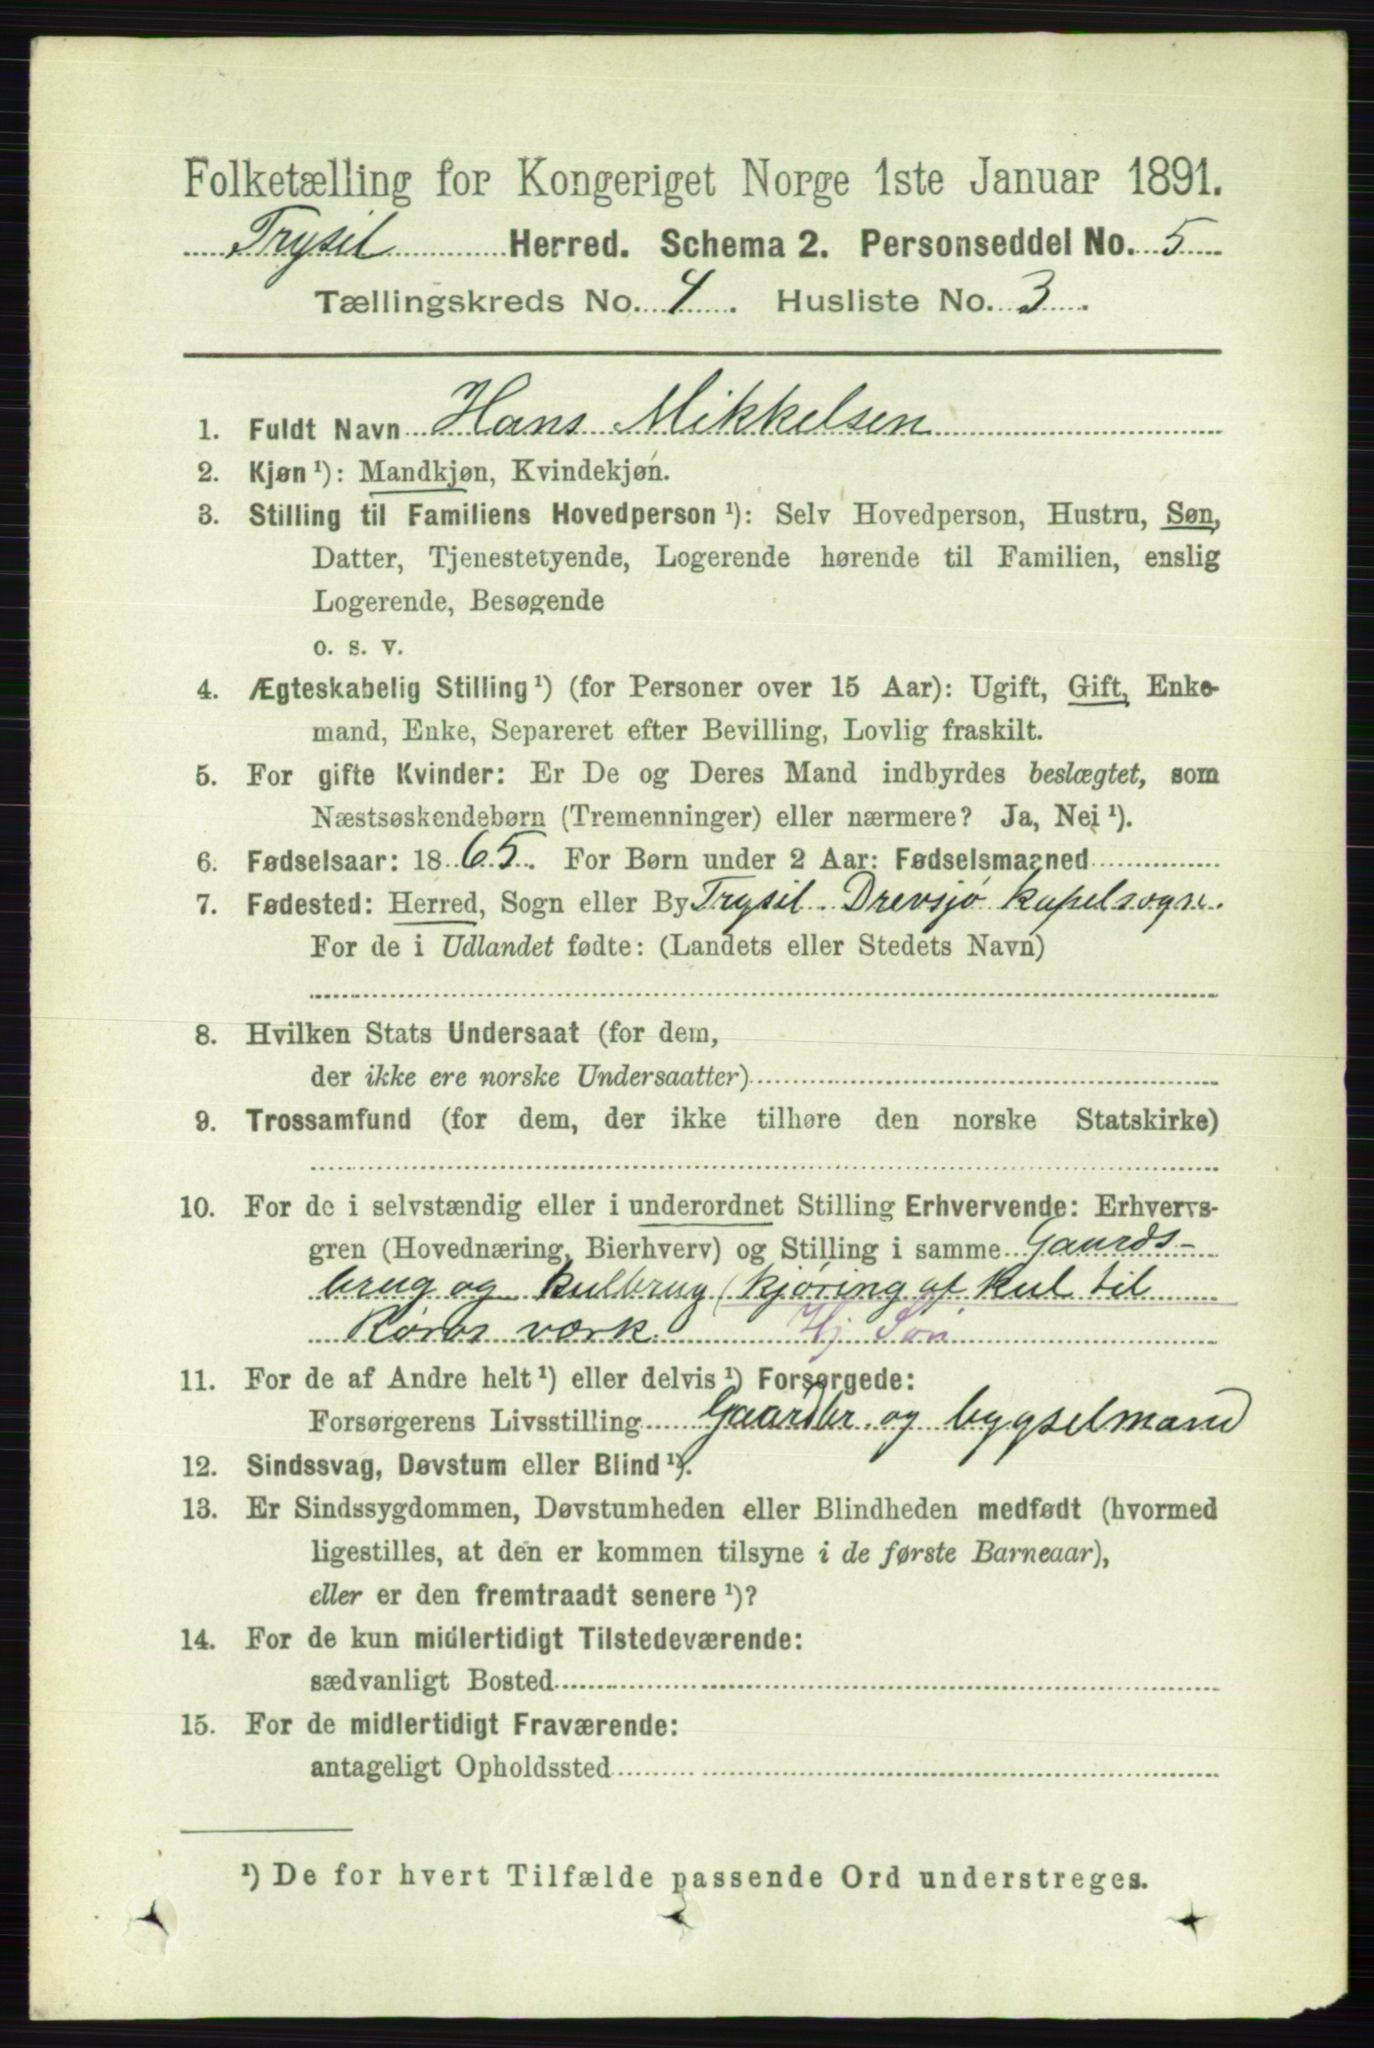 Folketælling for Kongeriget Norge 1ste Januar 1891.
Trysil Herred. Schema 2. Personseddel No. 5
Tællingskreds No. 4. Husliste No. 3.
1. Fuldt Navn Hans Mikkelsen
2. Kjøn ¹): Mandkjøn, Kvindekjøn.
3. Stilling til Familiens Hovedperson ¹): Selv Hovedperson, Hustru, Søn,
Datter, Tjenestetyende, Logerende hørende til Familien, enslig
Logerende, Besøgende
o. s. v.
4. Ægteskabelig Stilling ¹) (for Personer over 15 Aar): Ugift, Gift, Enke-
mand, Enke, Separeret efter Bevilling, Lovlig fraskilt.
5. For gifte Kvinder: Er De og Deres Mand indbyrdes beslægtet, som
Næstsøskendebørn (Tremenninger) eller nærmere? Ja, Nei ¹).
6. Fødselsaar: 1865. For Børn under 2 Aar: Fødselsmaaned
7. Fødested: Herred, Sogn eller By Trysil Drevsjø kapelsogn.
For de i Udlandet fødte: (Landets eller Stedets Navn)
8. Hvilken Stats Undersaat (for dem,
der ikke ere norske Undersaatter)
9. Trossamfund (for dem, der ikke tilhøre den norske Statskirke)
10. For de i selvstændig eller i underordnet Stilling Erhvervende: Erhvervs-
gren (Hovednæring, Bierhverv) og Stilling i samme Gaards-
brug og kulbrug (kjøring af kul til
Røros værk. Hj Søn
11. For de af Andre helt ¹) eller delvis ¹) Forsørgede:
Forsørgerens Livsstilling Gaardbr. og bygselmand
12. Sindssvag, Døvstum eller Blind ¹).
13. Er Sindssygdommen, Døvstumheden eller Blindheden medfødt (hvormed
ligestilles, at den er kommen tilsyne i de første Barneaar),
eller er den fremtraadt senere ¹)?
14. For de kun midlertidigt Tilstedeværende:
sædvanligt Bosted
15. For de midlertidigt Fraværende:
antageligt Opholdssted
¹) De for hvert Tilfælde passende Ord understreges.